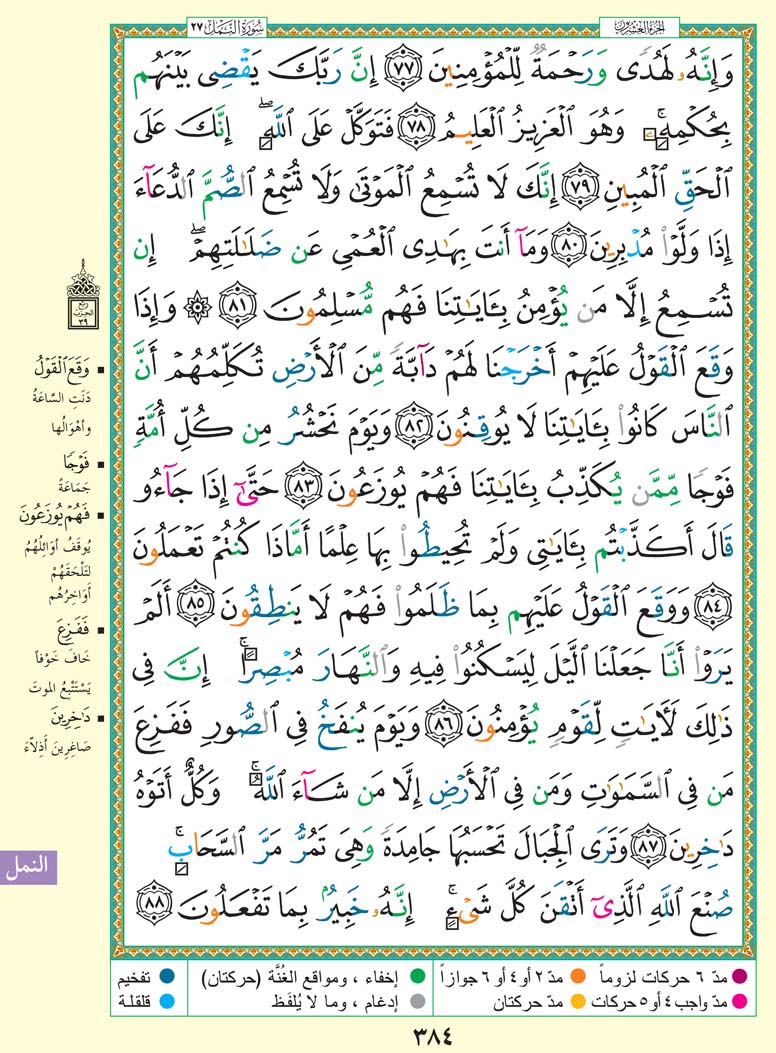 الجزء العشرون
سورة النمل ٢٧
وَإِنَّهُۥ لَهُدًى وَرَحْمَةٌ لِّلْمُؤْمِنِينَ ٧٧ إِنَّ رَبَّكَ يَقْضِى بَيْنَهُم
بِحُكْمِهِۦۚ وَهُوَ ٱلْعَزِيزُ ٱلْعَلِيمُ ٧٨ فَتَوَكَّلْ عَلَى ٱللَّهِۖ إِنَّكَ عَلَى
ٱلْحَقِّ ٱلْمُبِينِ ٧٩ إِنَّكَ لَا تُسْمِعُ ٱلْمَوْتَىٰ وَلَا تُسْمِعُ ٱلصُّمَّ ٱلدُّعَآءَ
إِذَا وَلَّوْا۟ مُدْبِرِينَ ٨٠ وَمَآ أَنتَ بِهَٰدِى ٱلْعُمْىِ عَن ضَلَٰلَتِهِمْۖ إِن
تُسْمِعُ إِلَّا مَن يُؤْمِنُ بِـَٔايَٰتِنَا فَهُم مُّسْلِمُونَ ٨١ ۞ وَإِذَا
وَقَعَ ٱلْقَوْلُ عَلَيْهِمْ أَخْرَجْنَا لَهُمْ دَآبَّةً مِّنَ ٱلْأَرْضِ تُكَلِّمُهُمْ أَنَّ
ٱلنَّاسَ كَانُوا۟ بِـَٔايَٰتِنَا لَا يُوقِنُونَ ٨٢ وَيَوْمَ نَحْشُرُ مِن كُلِّ أُمَّةٍ
فَوْجًا مِّمَّن يُكَذِّبُ بِـَٔايَٰتِنَا فَهُمْ يُوزَعُونَ ٨٣ حَتَّىٰٓ إِذَا جَآءُو
قَالَ أَكَذَّبْتُم بِـَٔايَٰتِى وَلَمْ تُحِيطُوا۟ بِهَا عِلْمًا أَمَّاذَا كُنتُمْ تَعْمَلُونَ
٨٤ وَوَقَعَ ٱلْقَوْلُ عَلَيْهِم بِمَا ظَلَمُوا۟ فَهُمْ لَا يَنطِقُونَ ٨٥ أَلَمْ
يَرَوْا۟ أَنَّا جَعَلْنَا ٱلَّيْلَ لِيَسْكُنُوا۟ فِيهِ وَٱلنَّهَارَ مُبْصِرًاۚ إِنَّ فِى
ذَٰلِكَ لَـَٔايَٰتٍ لِّقَوْمٍ يُؤْمِنُونَ ٨٦ وَيَوْمَ يُنفَخُ فِى ٱلصُّورِ فَفَزِعَ
مَن فِى ٱلسَّمَٰوَٰتِ وَمَن فِى ٱلْأَرْضِ إِلَّا مَن شَآءَ ٱللَّهُۚ وَكُلٌّ أَتَوْهُ
دَٰخِرِينَ ٨٧ وَتَرَى ٱلْجِبَالَ تَحْسَبُهَا جَامِدَةً وَهِىَ تَمُرُّ مَرَّ ٱلسَّحَابِۚ
صُنْعَ ٱللَّهِ ٱلَّذِىٓ أَتْقَنَ كُلَّ شَىْءٍۚ إِنَّهُۥ خَبِيرٌۢ بِمَا تَفْعَلُونَ ٨٨
ربع
الحزب
٣٩
وَقَعَ ٱلْقَوْلُ
دَنَتِ السَّاعَةُ
وأهْوَالُها
فَوْجًا
جَمَاعَةً
فَهُمْ يُوزَعُونَ
يُوقَفُ أوَائِلُهُمْ
لِتَلْحَقَهُمْ
أوَاخِرُهُم
فَفَزِعَ
خَافَ خَوْفاً
يَسْتَتْبِعُ الموتَ
دَاخِرِينَ
صَاغِرِينَ أذِلَّاءَ
النمل
مدّ ٦ حركات لزوماً
مدّ ٢ أو ٤ أو ٦ جوازاً
إخفاء ، ومواقع الغُنَّة (حركتان)
تفخيم
مدّ واجب ٤ أو ٥ حركات
مدّ حركتان
إدغام ، وما لا يُلفَظ
قلقلة
٣٨٤